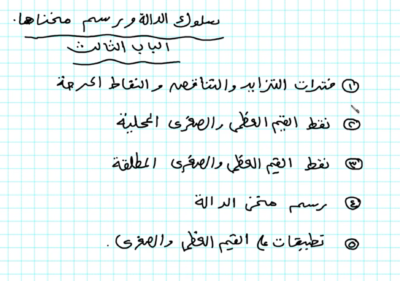 سلوك الدالة ورسم منحناها.
الباب الثالث
١ فترات التزايد والتناقص والنقاط الحرجة
٢ نقط القيم العظمى والصغرى المحلية
٣ نقط القيم العظمى والصغرى المطلقة
٤ رسم منحنى الدالة
٥ تطبيقات على القيم العظمى والصغرى.